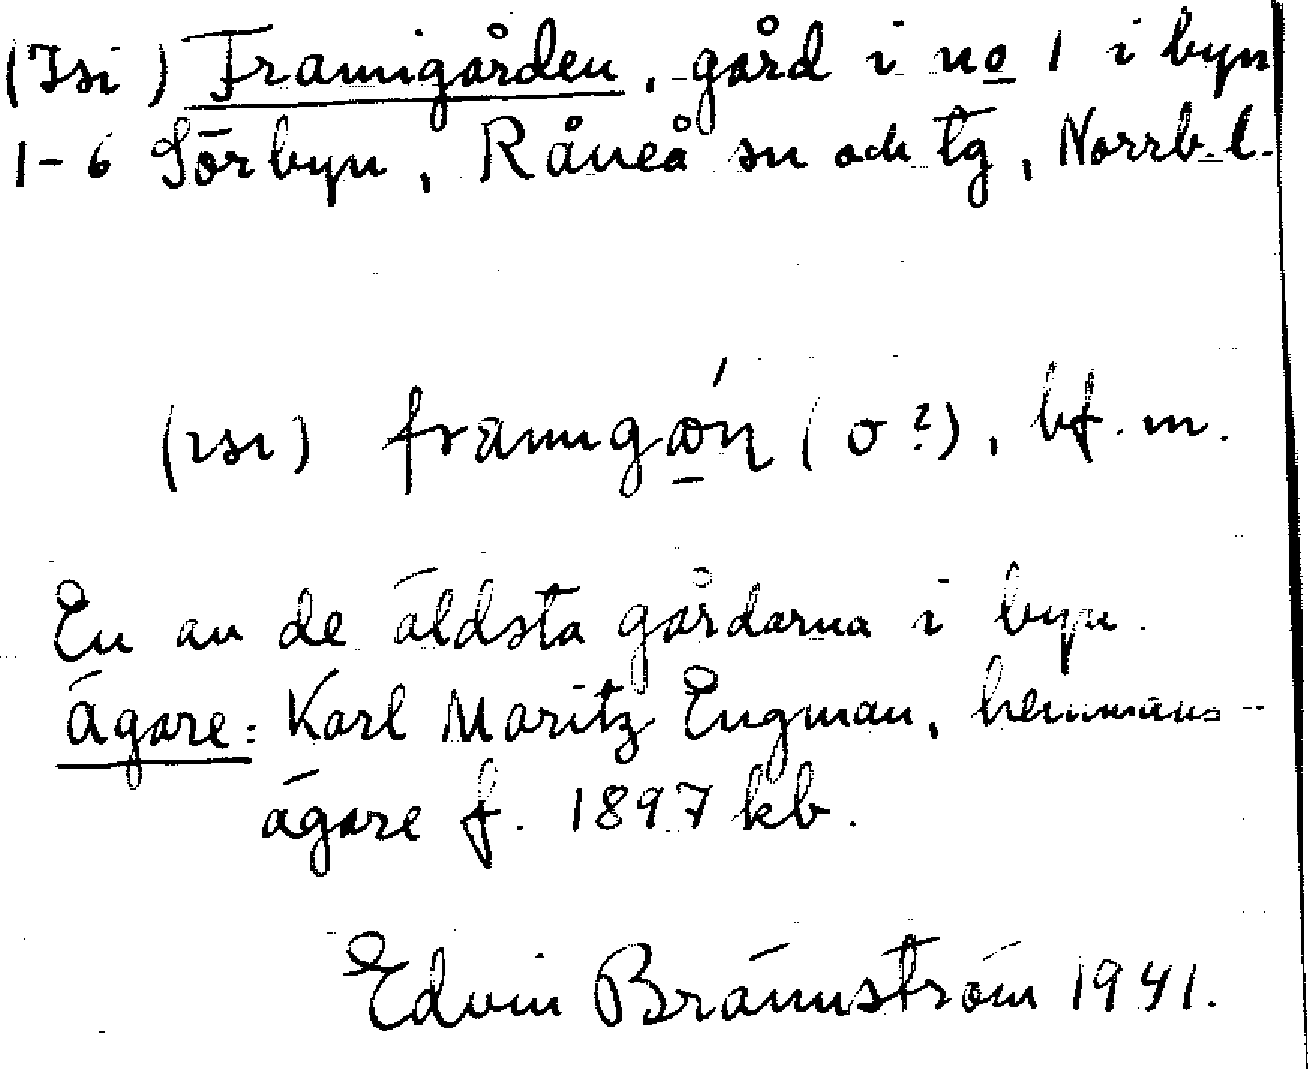 (Isi) Framigården, gård i no 1 i byn
1-6 Sörbyn, Råneå sn och tg, Norrb. l.
(ısı) (o?), bf. m.
En av de äldsta gårdarna i byn.
Ägare: Karl Moritz Engman, hemmans-
ägare f. 1897 kb.
Edvin Brännström 1941.